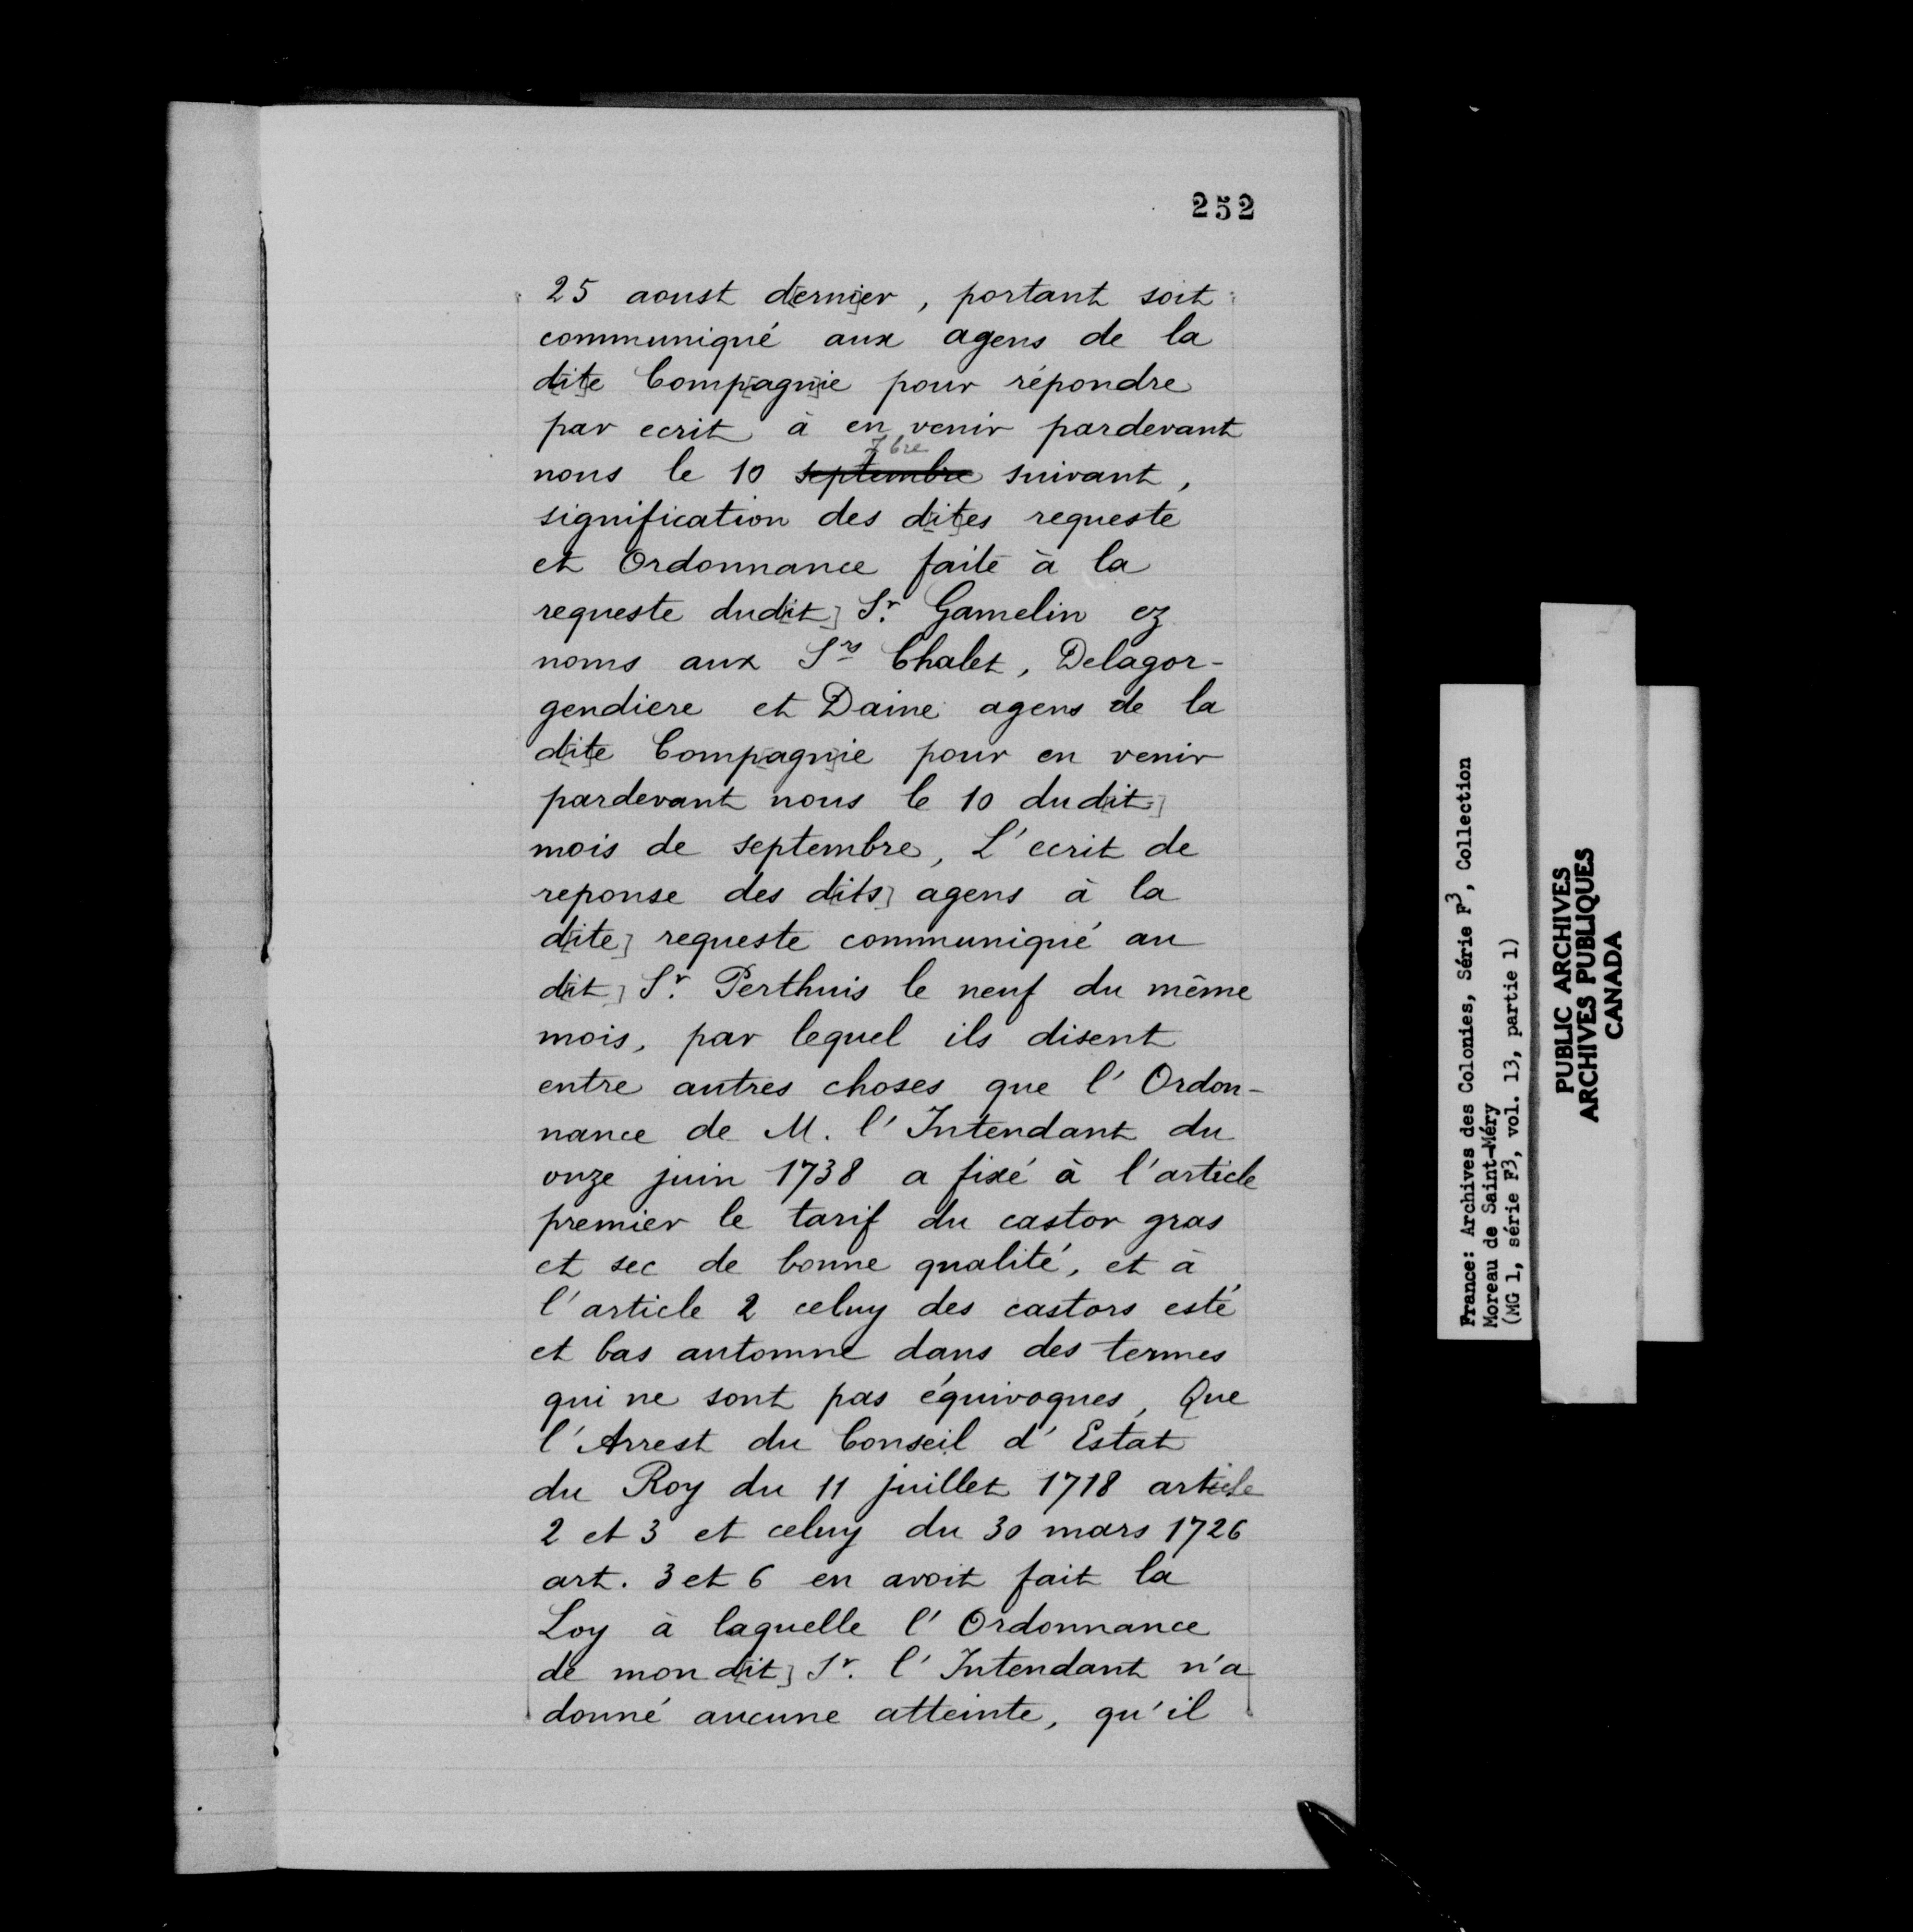 252
25 aoust d[erni]er, portant soit
communiqué aux agens de la
d[it]e Comp[agn]ie pour répondre
par ecrit à en venir pardevant
7bre
nous le 10 septembre suivant,
signification des d[it]es requeste
et Ordonnance faite à la
requeste dud[it] Sr. Gamelin ez
noms aux Srs Chalet, Delagor-
gendiere et Daine agens de la
d[it]e Comp[agn]ie pour en venir
pardevant nous le 10 dud[it]
mois de septembre, L'ecrit de
reponse des d[its] agens à la
d[ite] requeste communiqué au
d[it] Sr. Perthuis le neuf du même
mois, par lequel ils disent
entre autres choses que l'Ordon-
nance de M. l'Intendant du
onze juin 1738 a fixé à l'article
premier le tarif du castor gras
et sec de bonne qualité, et à
l'article 2 celuy des castors esté
et bas automne dans des termes
qui ne sont pas équivoques, Que
l'Arrest du Conseil d'Estat
du Roy du 11 juillet 1718 article
2 et 3 et celuy du 30 mars 1726
art. 3 et 6 en avoit fait la
Loy à laquelle l'Ordonnance
de mon d[it] Sr. l'Intendant n'a
donné aucune atteinte, qu'il
France: Archives des Colonies, Série F3, Collection
Moreau de Saint-Méry
(MG 1, série F3, vol. 13, partie 1)
PUBLIC ARCHIVES
ARCHIVES PUBLIQUES
CANADA